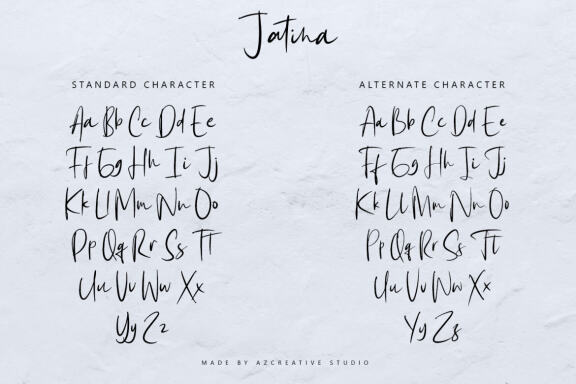 Jatina
STANDARD CHARACTER
Aa Bb Cc Dd Ee
Ff Gg Hh Ii Jj
Kk Ll Mm Nn Oo
Pp Qq Rr Ss Tt
Uu Vv Ww Xx
Yy Zz
ALTERNATE CHARACTER
Aa Bb Cc Dd Ee
Ff Gg Hh Ii Jj
Kk Ll Mm Nn Oo
Pp Qq Rr Ss Tt
Uu Vv Ww Xx
Yy Zz
MADE BY AZCREATIVE STUDIO